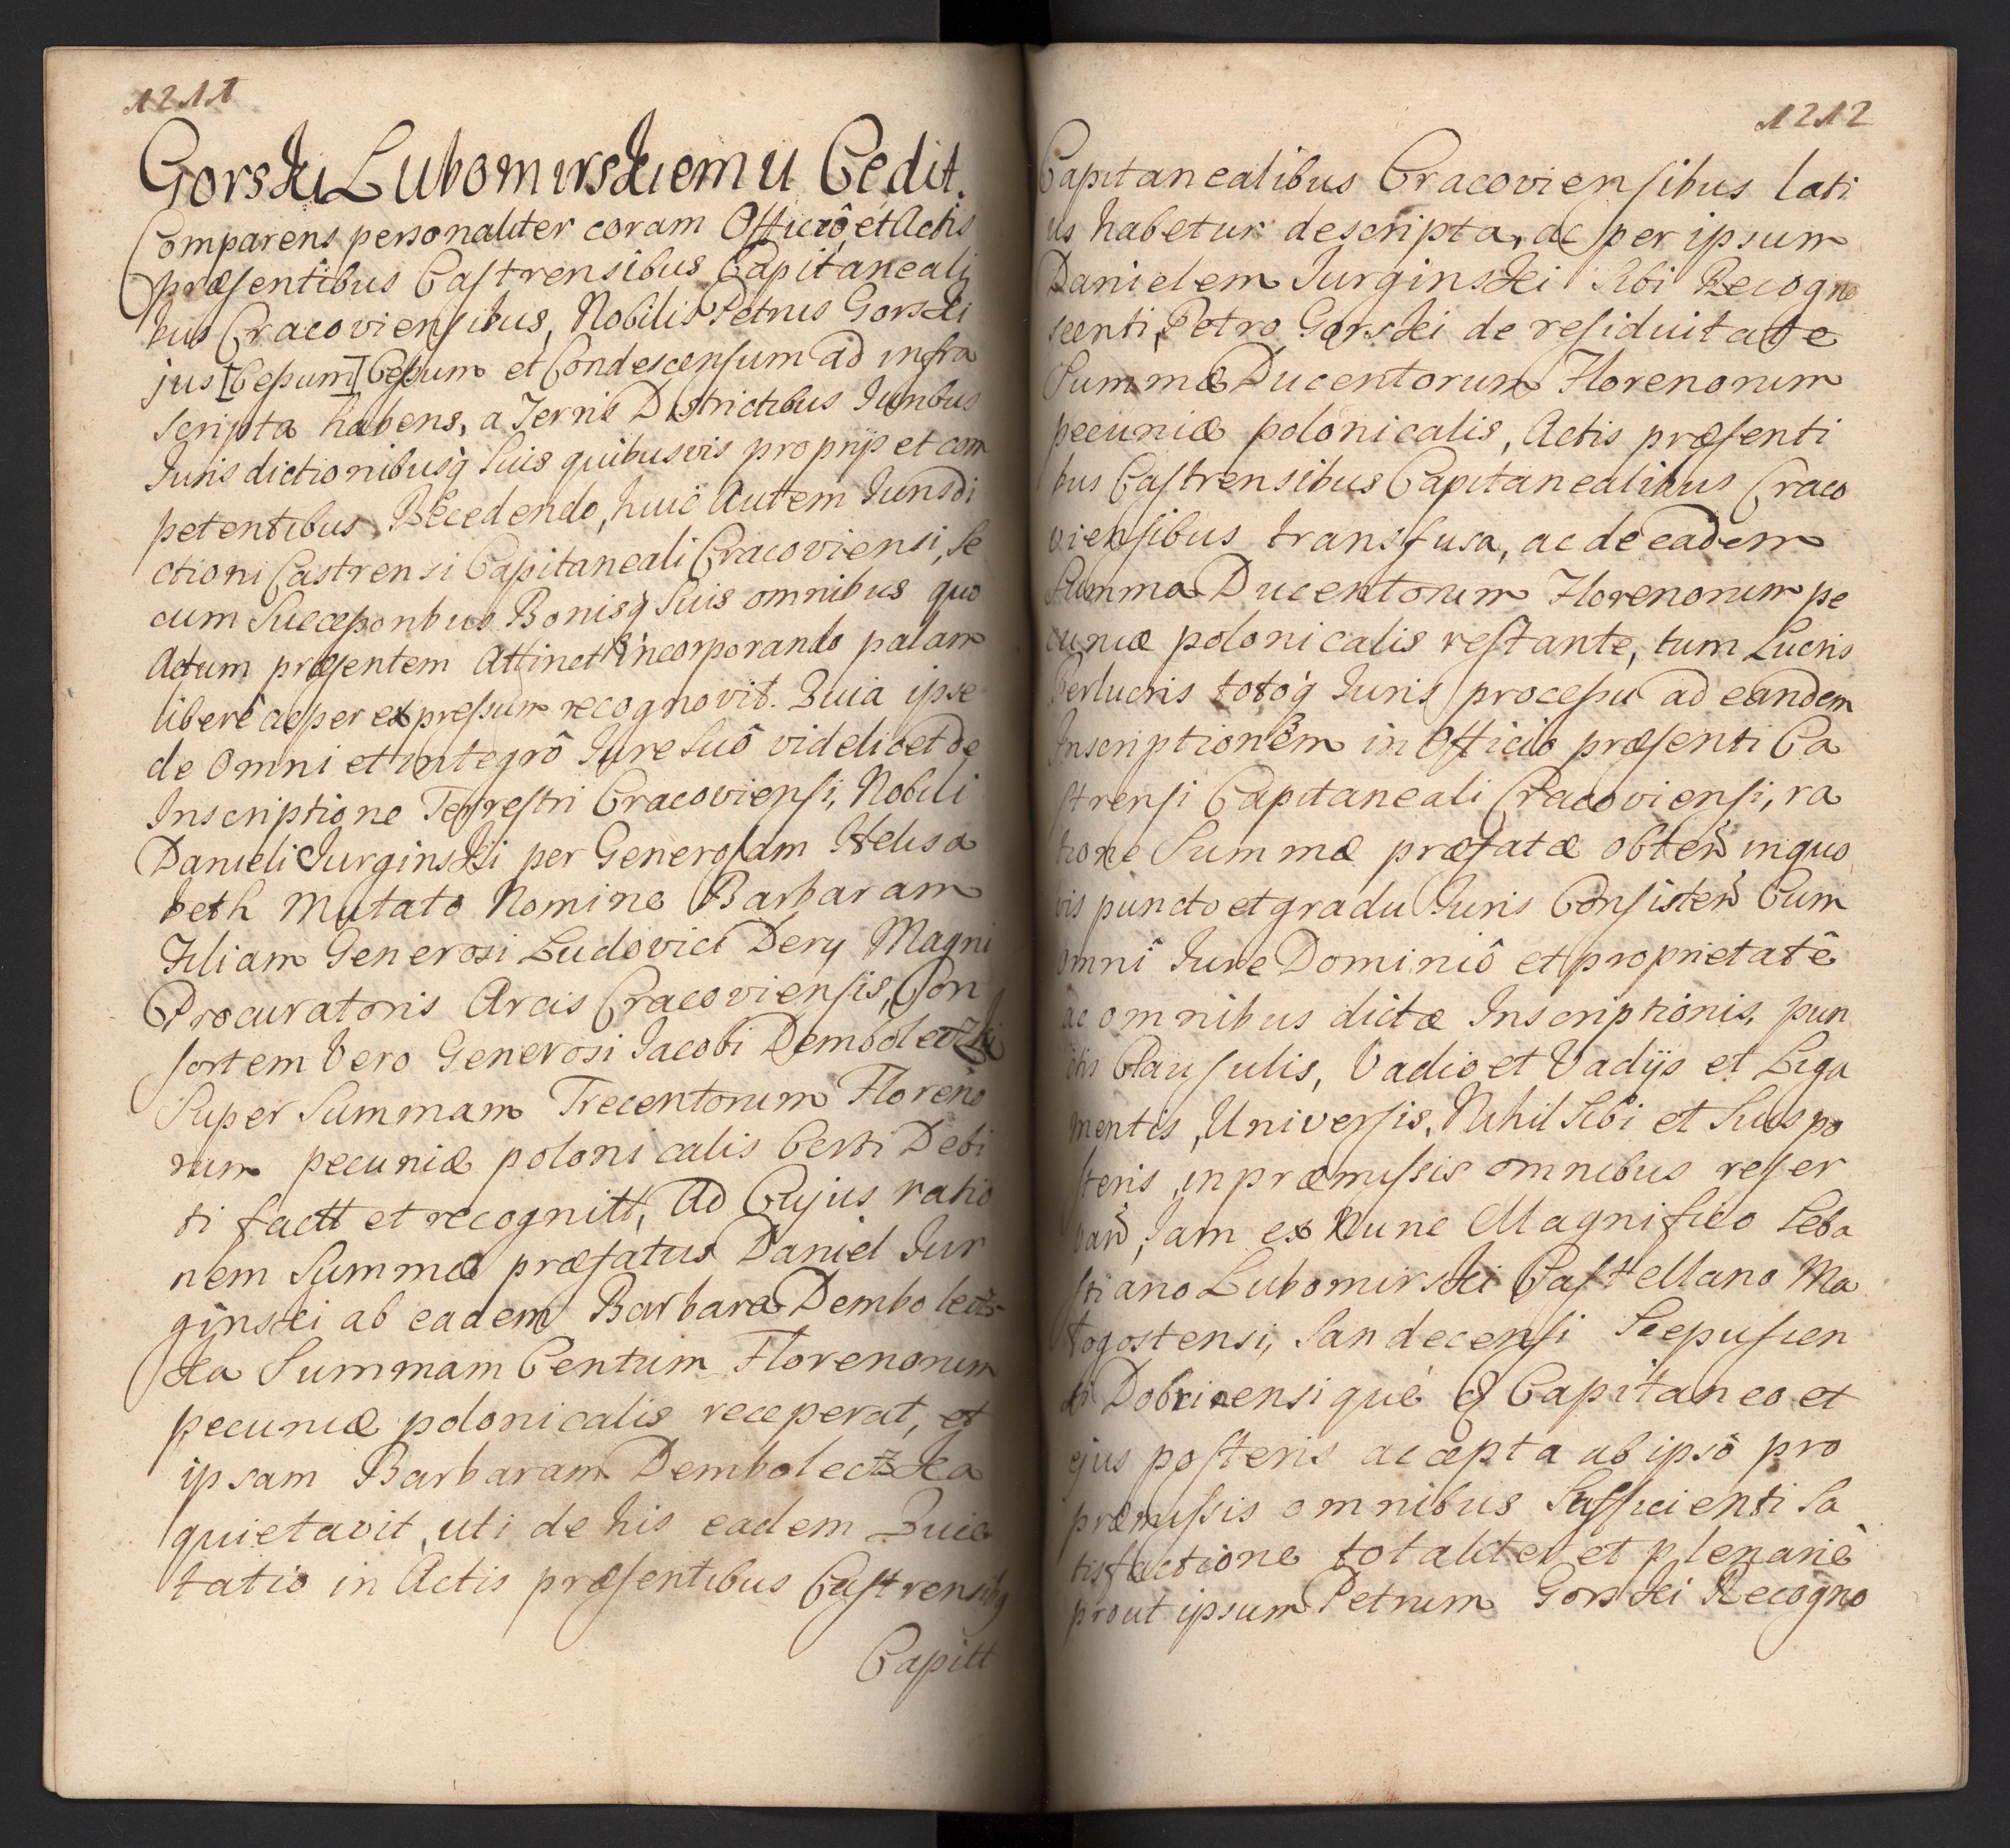 1211
Gorski Lubomirskiemu Cedit.
Comparens personaliter coram Officiô, et Actis
præsentibus Castrensibus Capitaneali
bus Cracoviensibus, Nobilis Petrus Gorski
jus [Cessum] Cessum et Condescensum ad infra
scripta habens, a Terris Districtibus Juribus
Jurisdictionibusq suis quibusvis proprijs et com
petentibus Recedendo, huic Autem Jurisdi
ctioni Castrensi Capitaneali Cracoviensi, se
cum Successoribus Bonisq suis omnibus quo
Actum præsentem Attinet incorporando palam
liberè ac per expressum recognovit. Quia ipse
de Omni et integrô Jure suô videlicet de
Inscriptione Terrestri Cracoviensi, Nobili
Danieli Jurginski per Generosam Helisa
beth Mutato Nomine Barbaram
Filiam Generosi Ludovici Dery Magni
Procuratoris Arcis Cracoviensis, Con
sortem Vero Generosi Jacobi Dembolecki
Super Summam Trecentorum Floreno
rum pecuniæ polonicalis Certi Debi
ti factt et recognitt, Ad Cujus ratio
nem Summæ præfatus Daniel Jur
ginski ab eadem Barbara Dembolecz
ka Summam Centum Florenorum
pecuniæ polonicalis receperat, et
ipsam Barbaram Dembolectzka
quietavit, uti de his eadem Quie
tatio in Actis præsentibus Castrensibq
Capitt
1212
Capitanealibus Cracoviensibus lati
us habetur descripta, ac per ipsum
Danielem Jurginski sibi Recogno
scenti, Petro Gorski de residuitate
Summæ Ducentorum Florenorum
pecuniæ polonicalis, Actis præsenti
bus Castrensibus Capitanealibus Craco
viensibus transfusa, ac de eadem
Summa Ducentorum Florenorum pe
cuniæ polonicalis restante, tum Lucris
Perlucris totoq Juris processu ad eandem
Inscriptionem in Officio præsenti Ca
strensi Capitaneali Cracoviensi, ra
tione Summæ præfatæ obten in quo
vis puncto et gradu Juris Consisten Cum
omni Jure Dominiô et proprietatê
ac omnibus dictæ Inscriptionis, pun
ctis Clausulis, Vadio et Vadijs et Liga
mentis, Universis, Nihil sibi et suis po
steris, in præmissis omnibus reser
van, Jam ex Nunc Magnifico Seba
stiano Lubomirski Castellano Ma
togostensi, Sandecensi Scepusien
si Dobcicensique & Capitaneo et
ejus posteris accepta ab ipsô pro
præmissis omnibus Sufficienti Sa
tisfactione totaliter et plenariè
prout ipsum Petrum Gorski Recogno